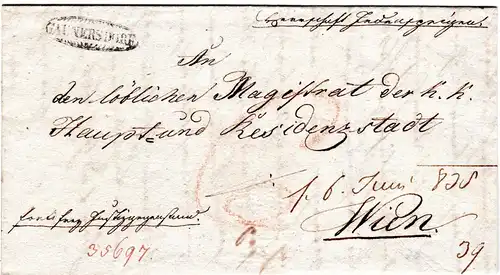 GAUNERSDORF
Herrschaft
An
den löblichen Magistrat der k. k.
Haupt= und Residenzstadt
6. Juni 838
Wien.
35697.
39